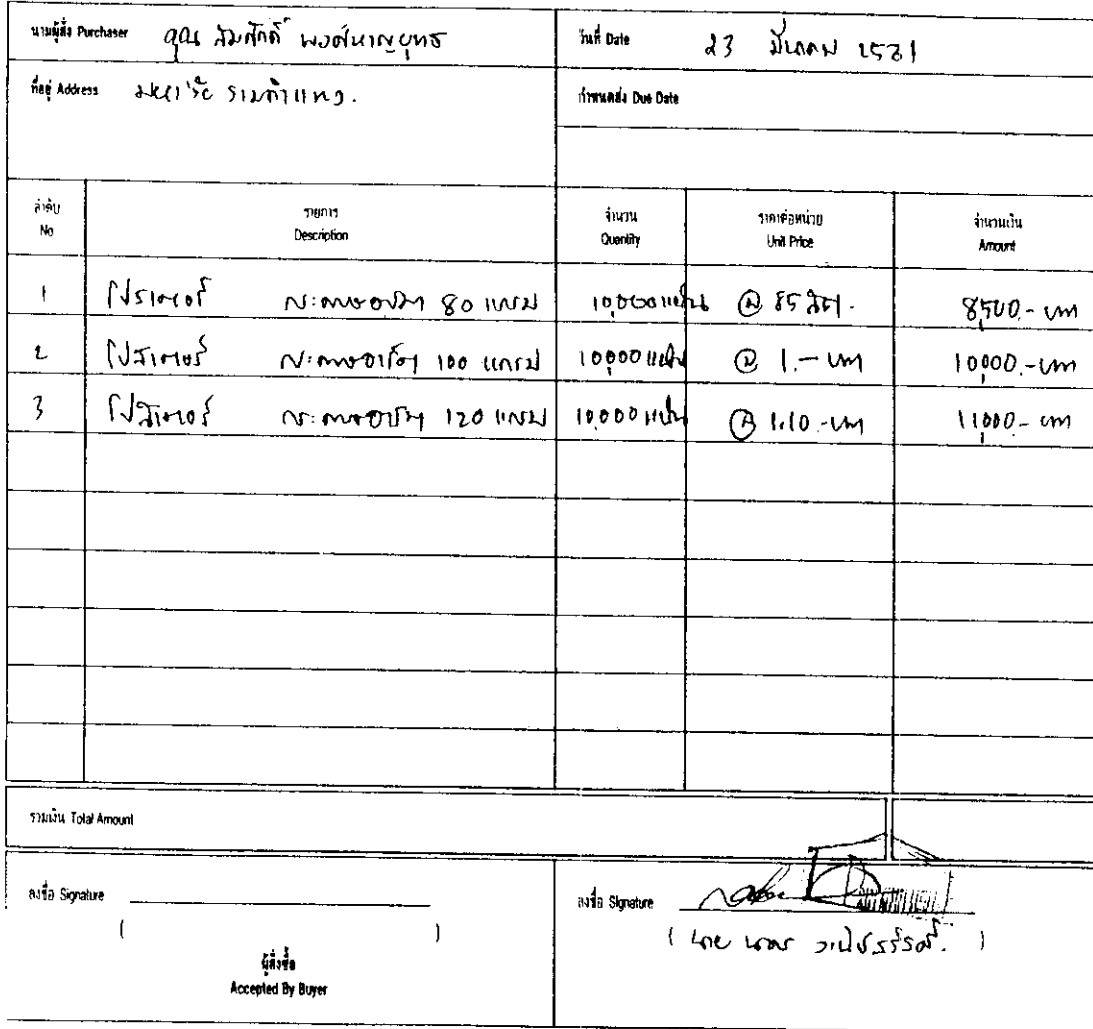 นามผู้สั่ง Purchaser คุณ สมศักดิ์ พงศ์หาญยุทธ
วันที่ Date 23 มีนาคม 2531
ที่อยู่ Address มหา'ลัย รามคำแหง.
กำหนดส่ง Due Date
ลำดับ รายการ จำนวน ราคาต่อหน่วย จำนวนเงิน
No Description Quantity Unit Price Amount
1 โปสเตอร์ กระดาษอาร์ต 80 แกรม 10,000 แผ่น @ 85 สต. 8,500.- บาท
2 โปสเตอร์ กระดาษอาร์ต 100 แกรม 10,000 แผ่น @ 1.- บาท 10,000.- บาท
3 โปสเตอร์ กระดาษอาร์ต 120 แกรม 10,000 แผ่น @ 1.10.- บาท 11,000.- บาท
รวมเงิน Total Amount
ลงชื่อ Signature
( )
ผู้สั่งซื้อ
Accepted By Buyer
ลงชื่อ Signature
( นาย )